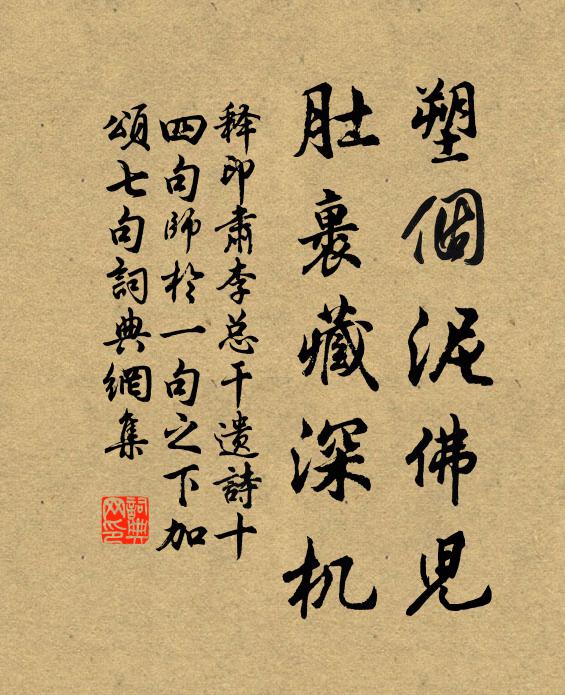 塑個泥佛兒
肚裏藏深机
释印肅李总干遗詩十
四句師於一句之下加
頌七句詞典網集
詞典
网印